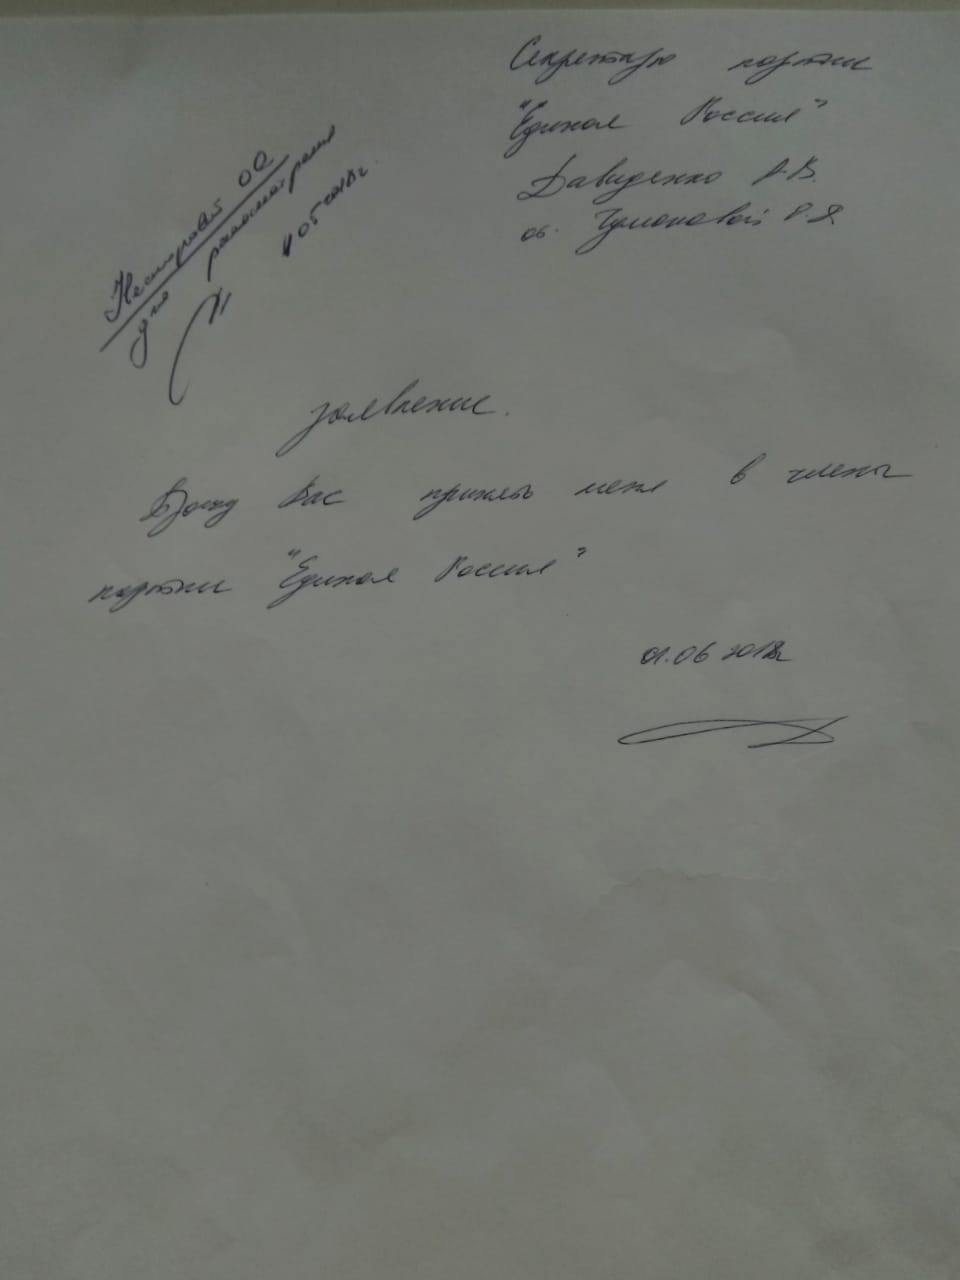 Секретарю партии
"Единая Россия"
Давиденко А.В.
от Чумаковой
Нестеровой ОО
для рассмотрения
2018г
заявление.
Прошу Вас принять меня в члены
партии "Единая Россия"
01.06 2018г